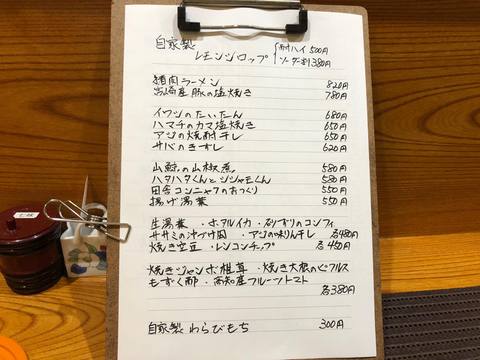 自家製
レモンシロップ 酎ハイ 500円
ソーダ割 380円
猪肉ラーメン 820円
宮崎産豚の塩焼き 780円
イワシのたいたん 680円
ハマチのカマ塩焼き 650円
アジの焼酎干し 650円
サバのきずし 620円
山鯨の山椒煮 580円
ハタハタくんとシシャモくん 580円
田舎コンニャクのおつくり 550円
揚げ湯葉 550円
生湯葉・ホタルイカ・砂ずりのコンフィ
ササミの汁づけ・アジの味りん干し 各480円
焼き空豆・レンコンチップ 各450円
焼きジャンボ椎茸・焼き大根のピクルス
もずく酢・高知産フルーツトマト
各380円
自家製わらびもち 300円